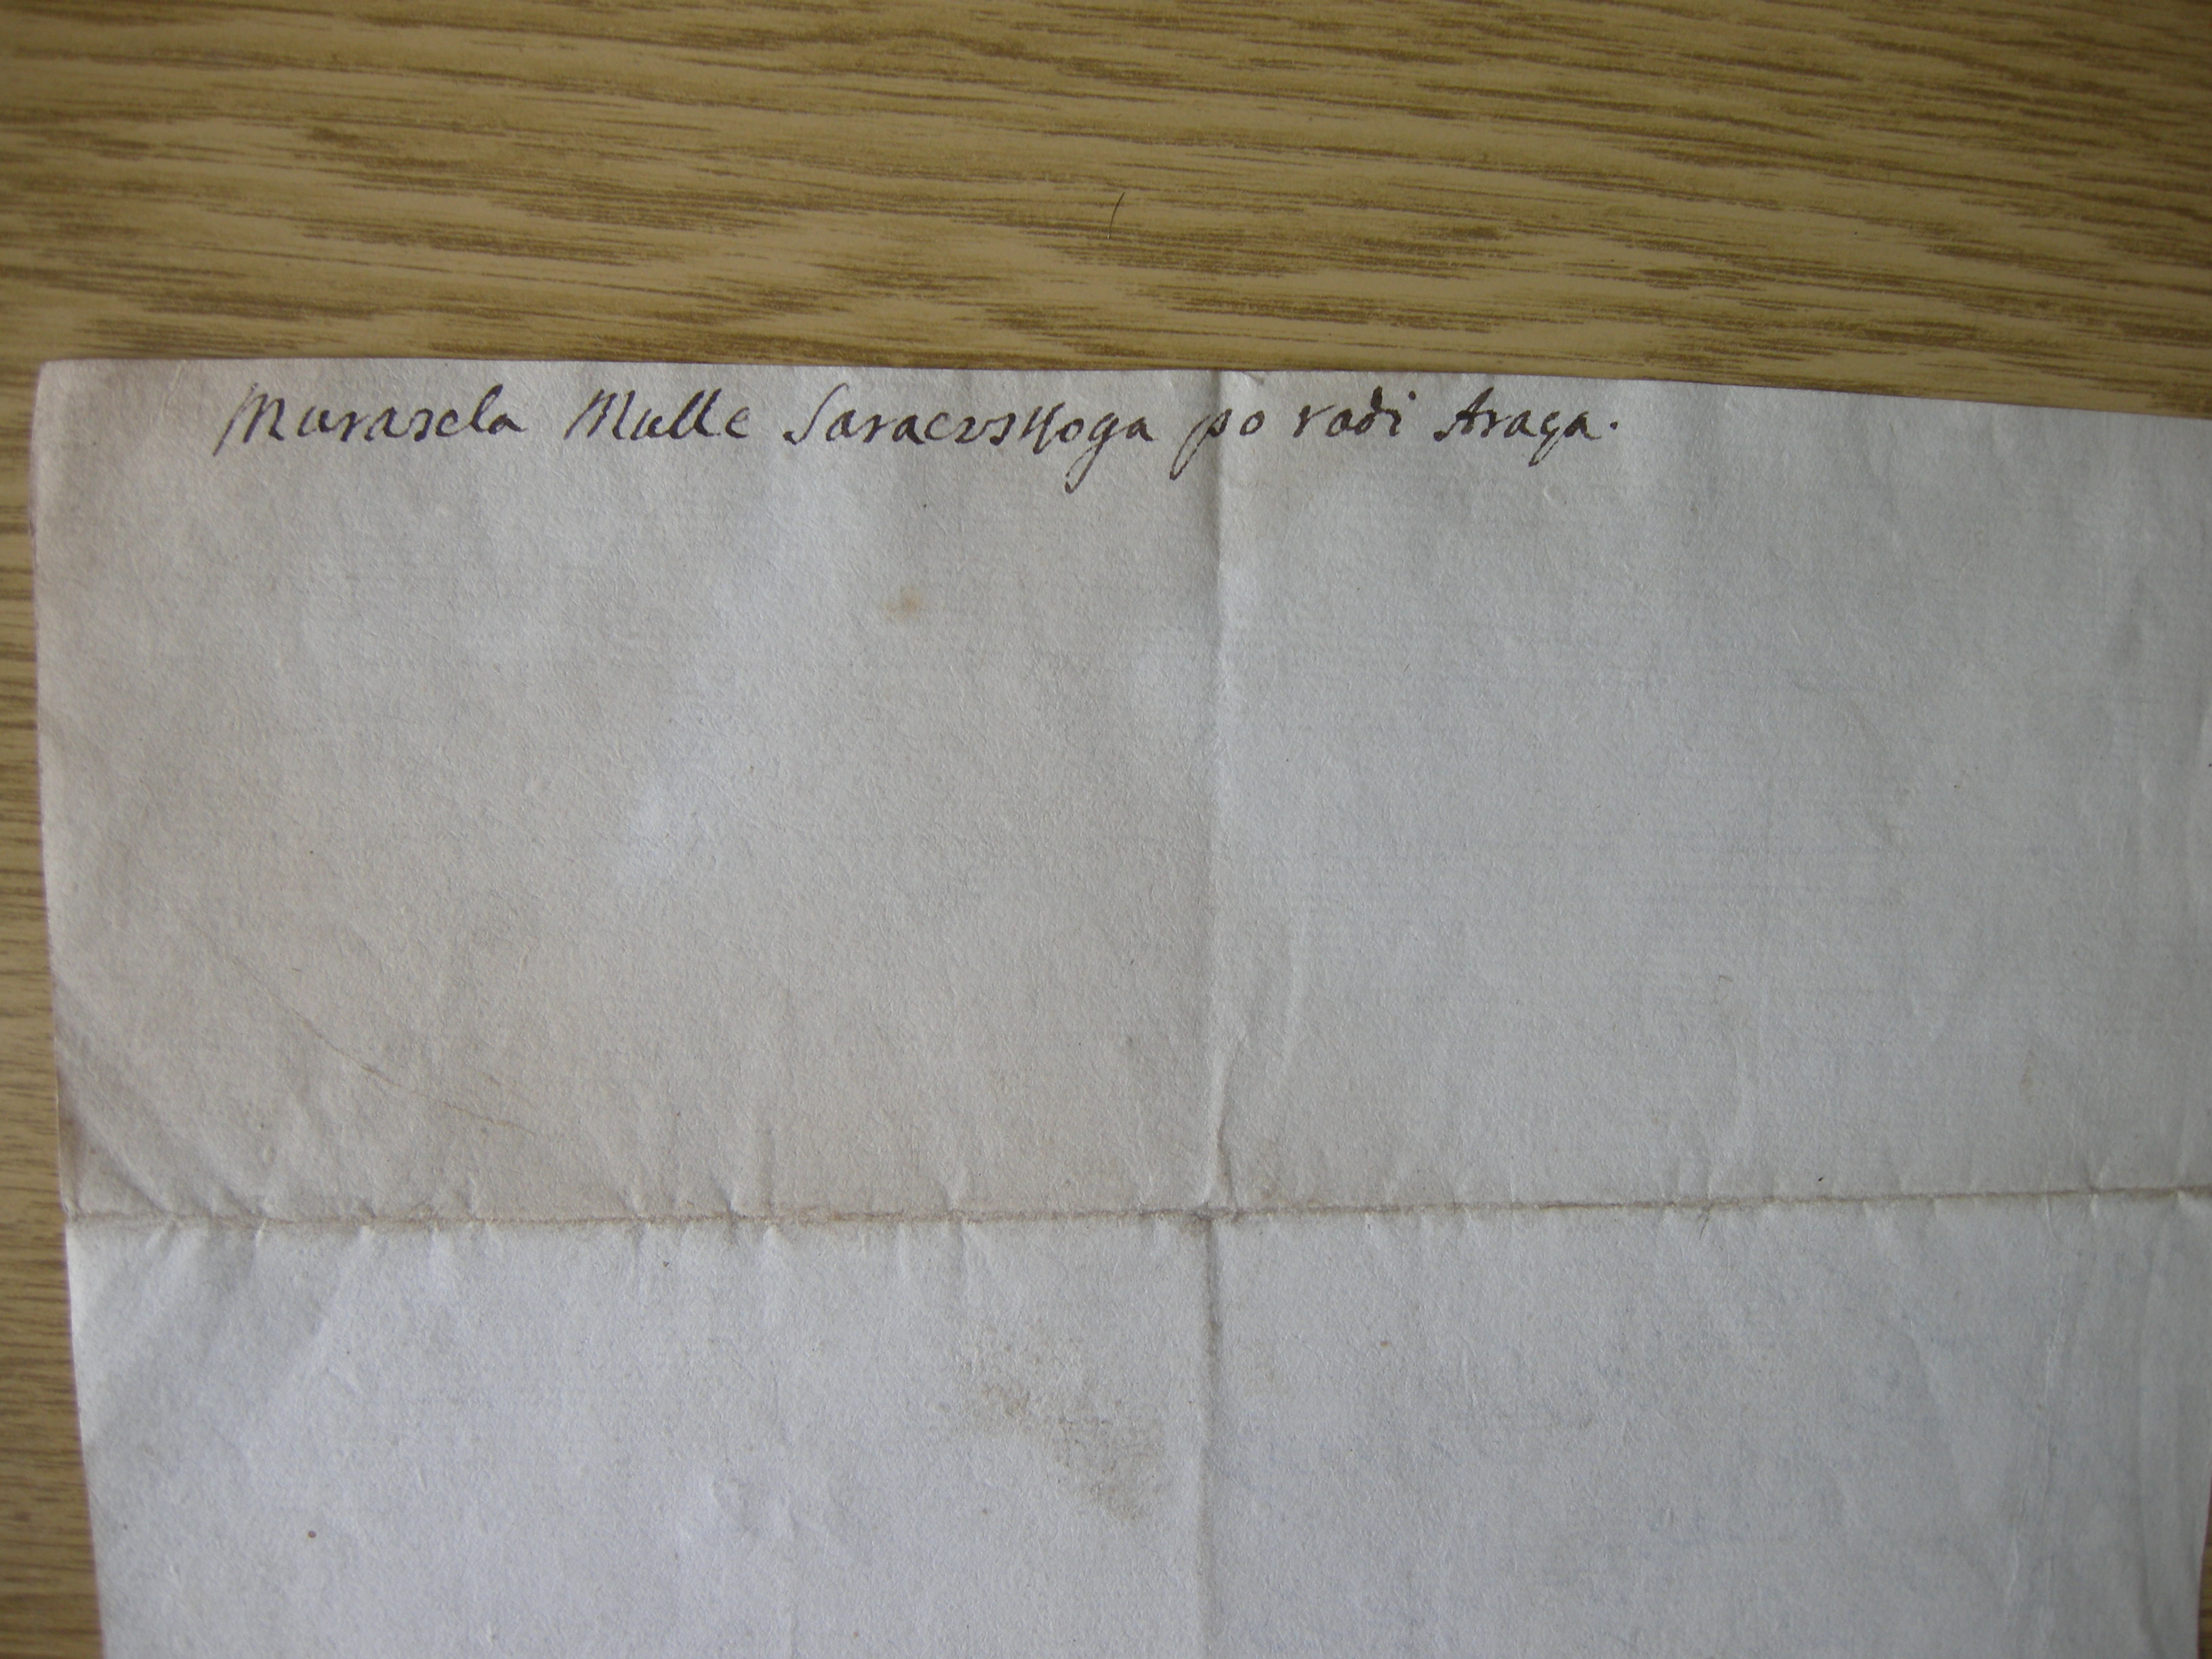 Murasela Mulle Saraevskoga po radi Araça.